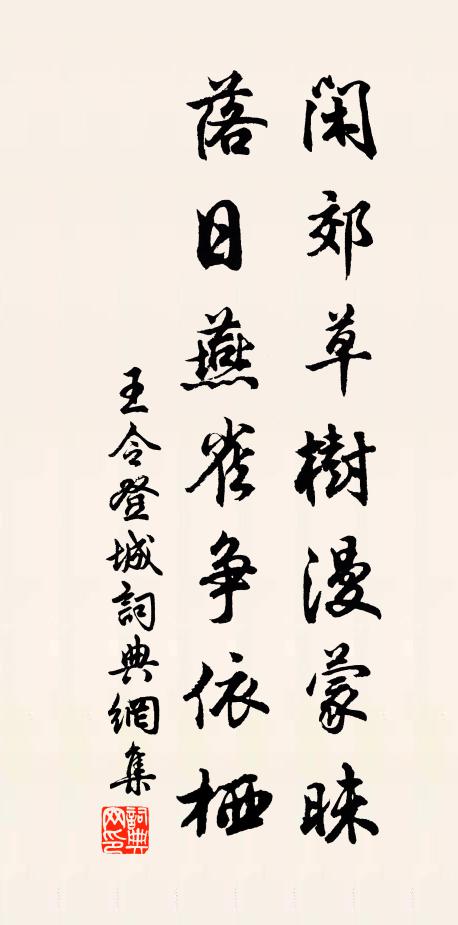 閑郊草樹漫蒙昧
落日燕雀争依栖
王令登城詞典網集
詞典网印